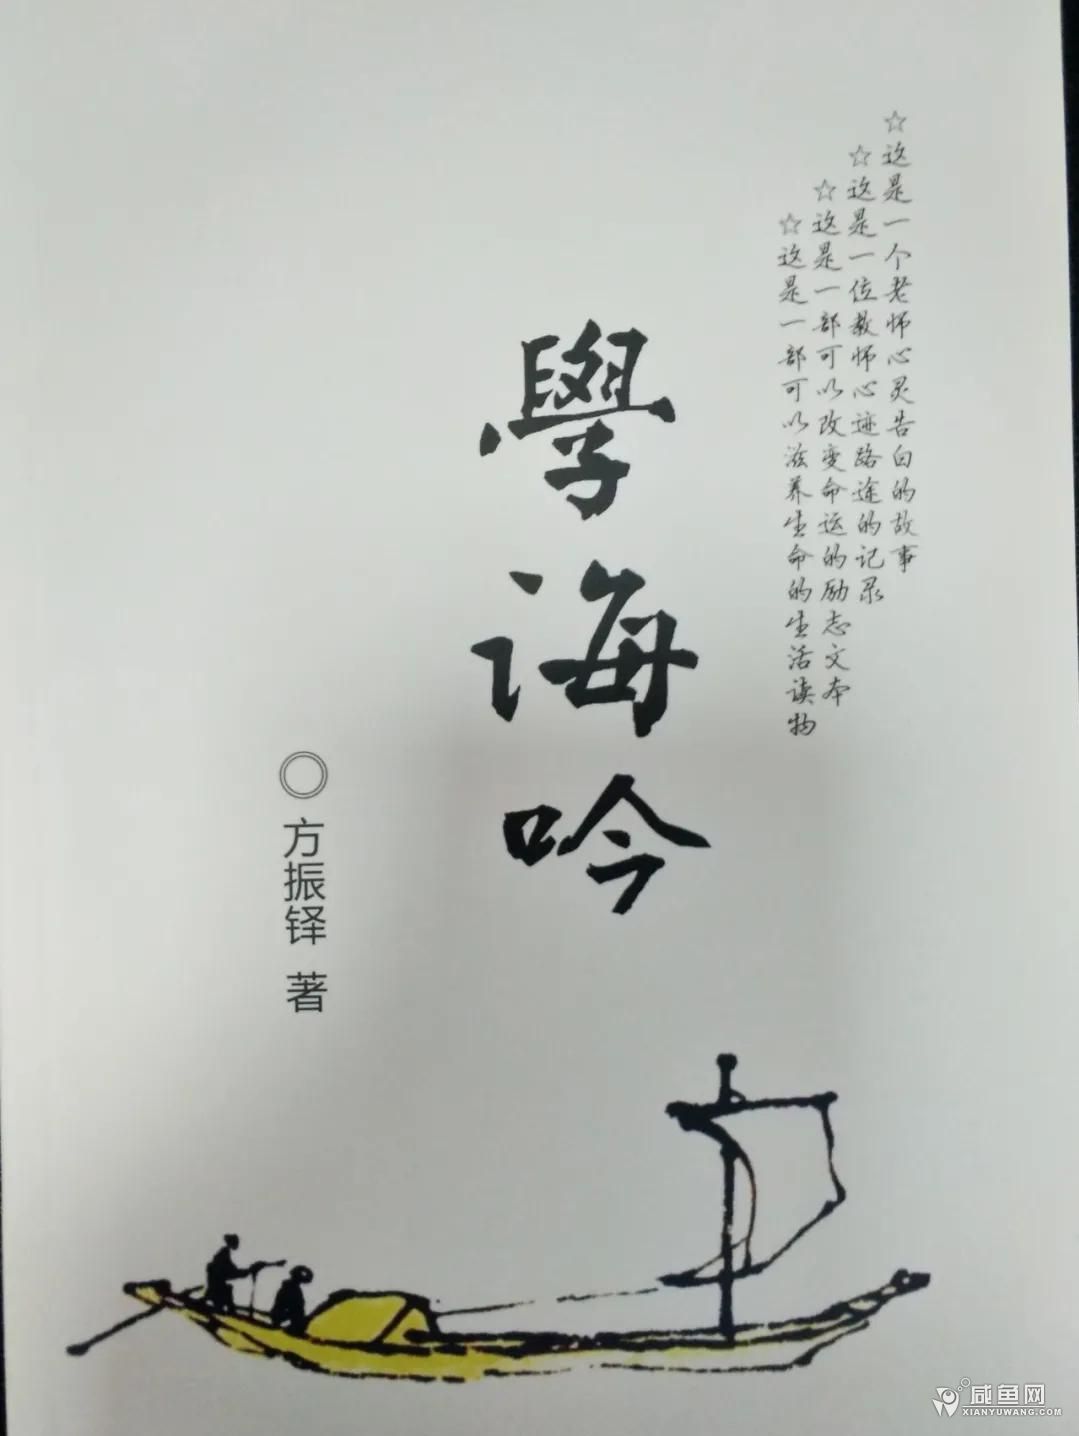 ☆这是一个老师心灵告白的故事
☆这是一位教师心迹路途的记录
☆这是一部可以改变命运的励志文本
☆这是一部可以滋养生命的生活读物
學海吟
◎方振铎 著
咸鱼网
XIANYUWANG.COM